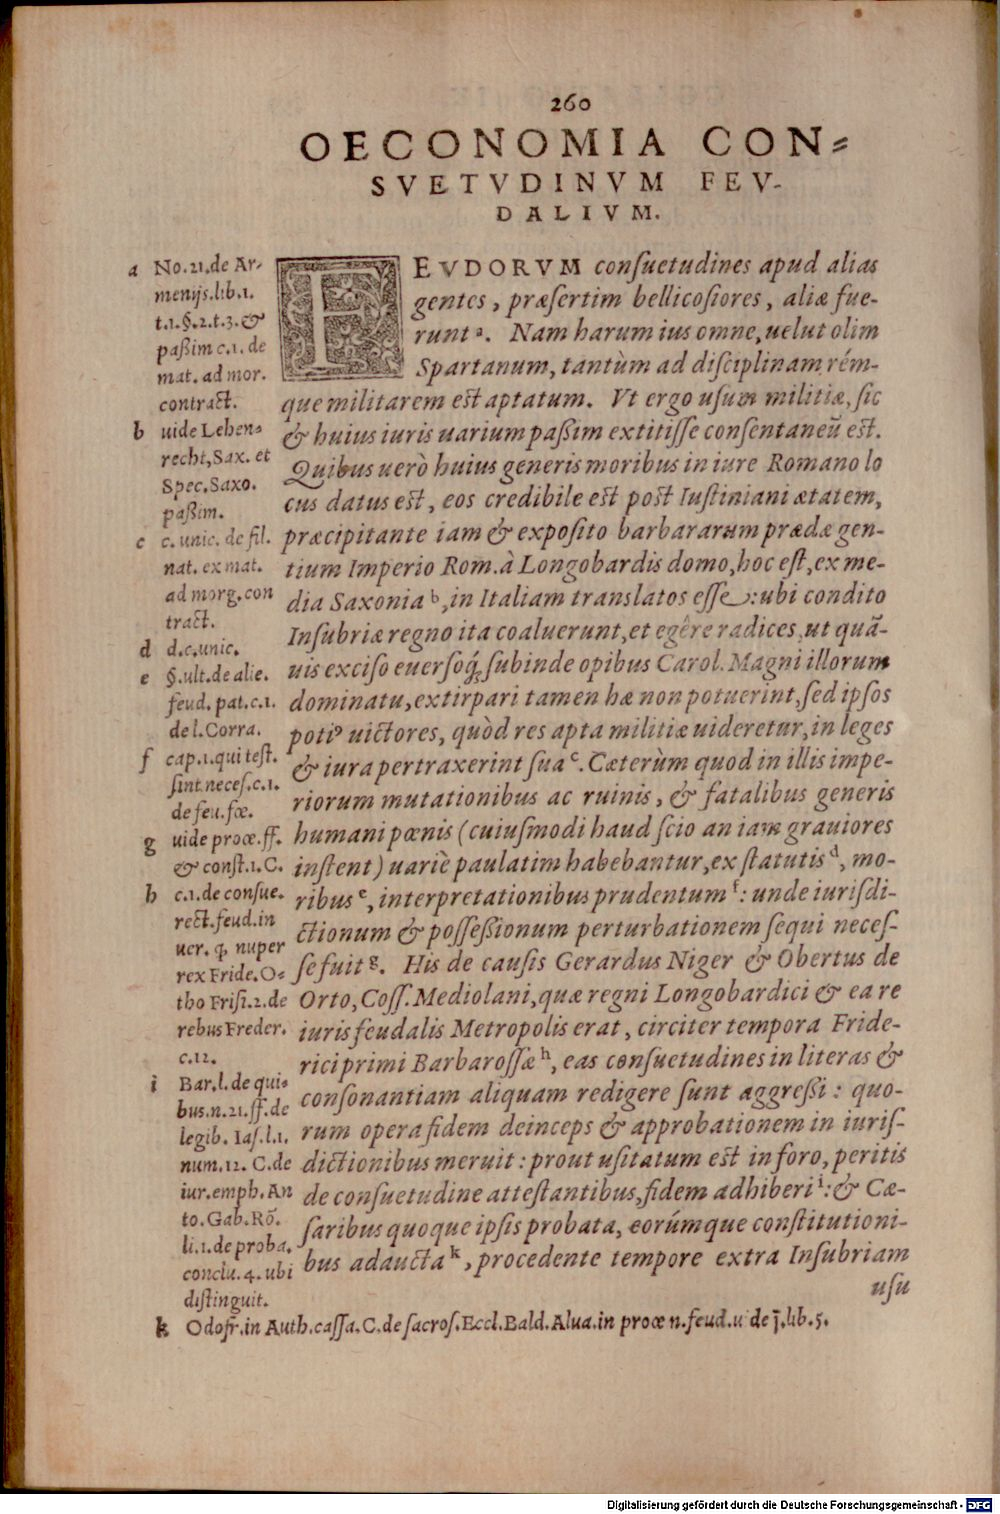 260
OECONOMIA CON⸗
SVETVDINVM FEV-
DALIVM.
FEVDORVM conſuetudines apud alias
gentes, præſertim bellicoſiores, aliæ fue-
runt ᵃ. Nam harum ius omne, uelut olim
Spartanum, tantùm ad diſciplinam, rém-
que militarem eſt aptatum. Vt ergo uſum militiæ, ſic
& huius iuris uarium paßim extitiſſe conſentaneū eſt.
Quibus uerò huius generis moribus in iure Romano lo
cus datus eſt, eos credibile eſt poſt Iuſtiniani ætatem,
præcipitante iam & expoſito barbararum prædæ gen-
tium Imperio Rom. à Longobardis domo, hoc eſt, ex me-
dia Saxonia ᵇ, in Italiam translatos eſſe: ubi condito
Inſubriæ regno ita coaluerunt, et egêre radices, ut quā-
uis exciſo euerſoq́; ſubinde opibus Carol. Magni illorum
dominatu, extirpari tamen hæ non potuerint, ſed ipſos
potiꝰ uictores, quòd res apta militiæ uideretur, in leges
& iura pertraxerint ſua ᶜ. Cæterùm quod in illis impe-
riorum mutationibus ac ruinis, & fatalibus generis
humani pœnis (cuiuſmodi haud ſcio an iam grauiores
inſtent) uariè paulatim habebantur, ex ſtatutis ᵈ, mo-
ribus ᵉ, interpretationibus prudentum ᶠ: unde iuriſdi-
ctionum & poſſeßionum perturbationem ſequi neceſ-
ſe fuit ᵍ. His de cauſis Gerardus Niger & Obertus de
Orto, Coſſ. Mediolani, quæ regni Longobardici & ea re
iuris feudalis Metropolis erat, circiter tempora Fride-
rici primi Barbaroſſæ ʰ, eas conſuetudines in literas &
conſonantiam aliquam redigere ſunt aggreßi: quo-
rum opera fidem deinceps & approbationem in iuriſ-
dictionibus meruit: prout uſitatum eſt in foro, peritis
de conſuetudine atteſtantibus, fidem adhiberi ⁱ: & Cæ-
ſaribus quoque ipſis probata, eorúmque conſtitutioni-
bus adaucta ᵏ, procedente tempore extra Inſubriam
uſu
a No. 21. de Ar-
menijs. lib. 1.
t. 1. §. 2. t. 3. &
paßim c. 1. de
mat. ad mor.
contract.
b uide Lehen⸗
recht, Sax. et
Spec. Saxo.
paßim.
c c. unic. de fil.
nat. ex mat.
ad morg. con
tract.
d d. c. unic.
e §. ult. de alie.
feud. pat. c. 1.
de l. Corra.
f cap. 1. qui teſt.
ſint neceſ. c. 1.
de feu. fœ.
g uide proœ. ff.
& conſt. 1. C.
h c. 1. de conſue.
rect. feud. in
uer. q. nuper
rex Fride. O⸗
tho Friſi. 2. de
rebus Freder.
c. 12.
i Bar. l. de qui⸗
bus. n. 21. ff. de
legib. Iaſ. l. 1.
num. 12. C. de
iur. emph. An
to. Gab. Rō.
li. 1. de proba.
conclu. 4. ubi
diſtinguit.
k Odofr. in Auth. caſſa. C. de ſacroſ. Eccl. Bald. Alua. in proœ n. feud. u de j. lib. 5.
Digitalisierung gefördert durch die Deutsche Forschungsgemeinschaft - DFG